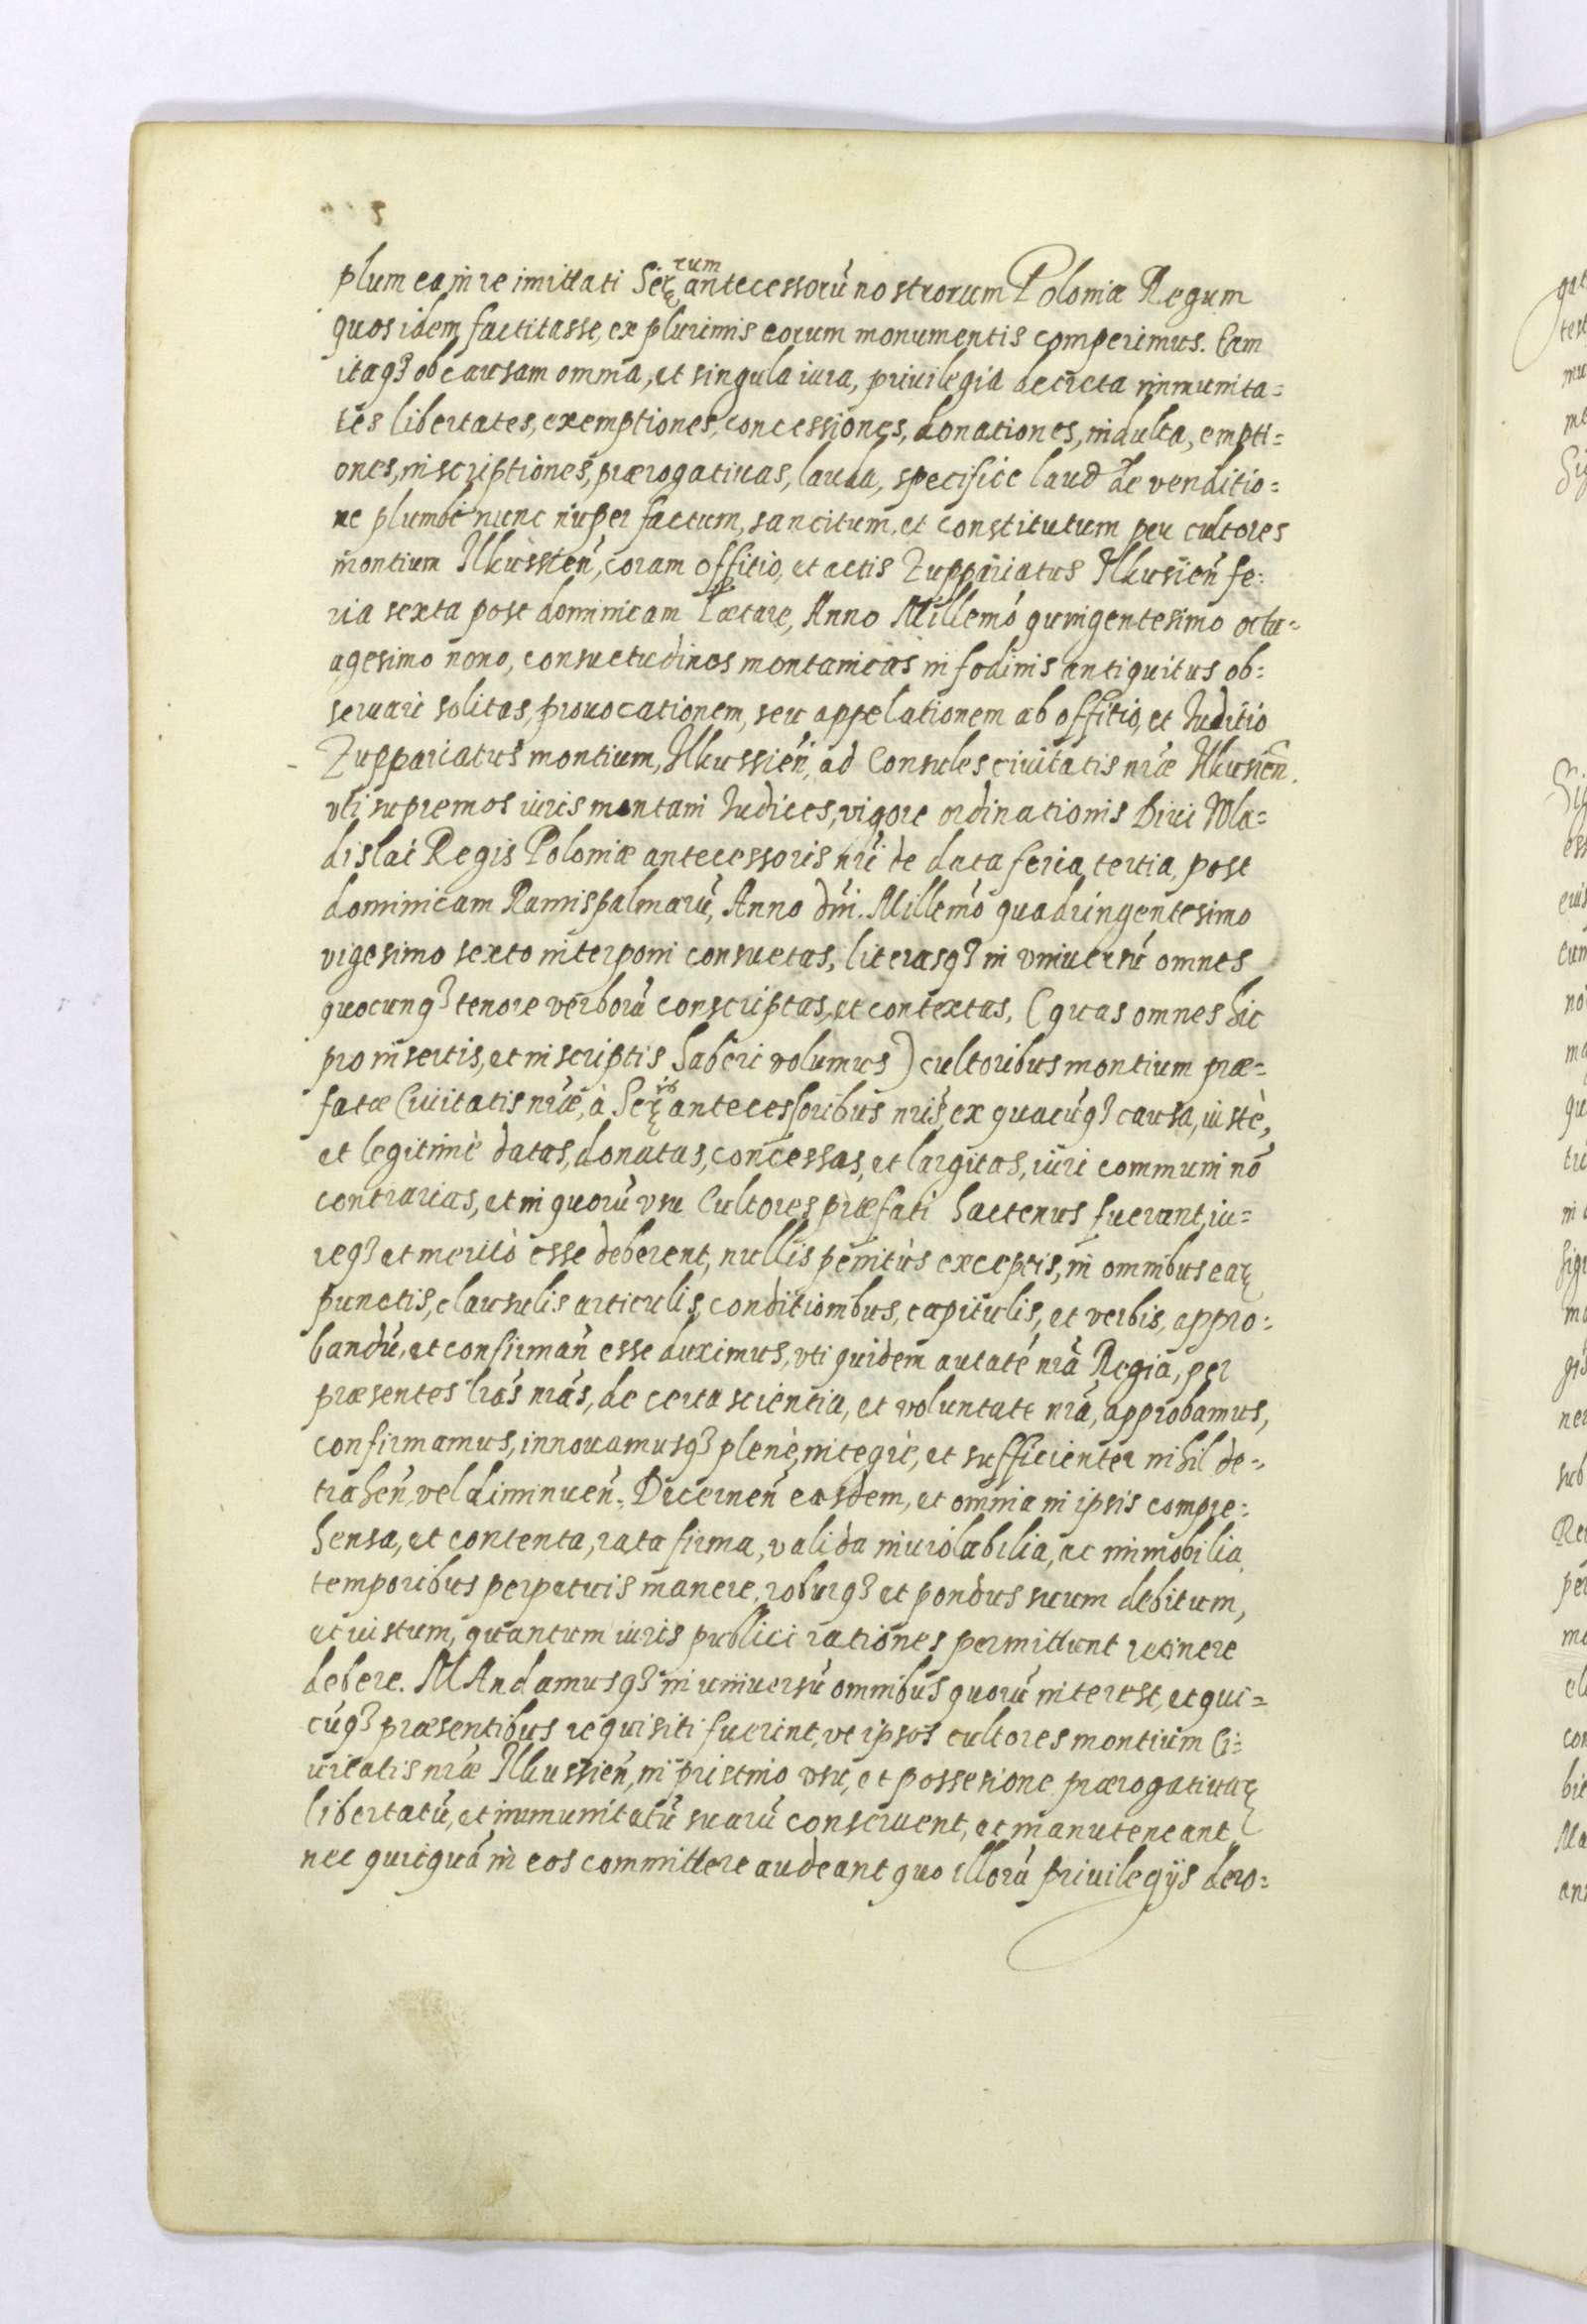 plum ea in re imittati Ser̃ꝝ rum antecessorũ nostrorum Poloniæ Regum
quos idem factitasse, ex plurimis eorum monumentis comperimus. Eam
itaqꝫ ob causam omnia, et singula iura, priuilegia decreta immunita=
tes libertates, exemptiones, concessiones, donationes, indulta, empti=
ones, inscriptiones, prærogatiuas, lauda, specifice laud de venditio=
ne plumbi nunc nuper factum, sancitum, et constitutum per cultores
montium Ilkussień, coram offitio, et actis Zuppariatus Ilkusień fe=
ria sexta post dominicam Lætare, Anno Millemó quingentesimo octu=
agesimo nono, consuetudines montanicas in fodinis antiquitus ob=
seruari solitas, prouocationem, seu appelationem ab offitio, et Iuditio
Zuppariatus montium, Ilkussień, ad Consules ciuitatis nr̃æ Ilkusień.
vti supremos iuris montani Iudices, vigore ordinationis Diui Wla=
dislai Regis Poloniæ antecessoris nr̃i de data feria tertia, post
dominicam Ramispalmarũ, Anno dñi. Millemó quadringentesimo
vigesimo sexto interponi consuetas, literasqꝫ in vniuersũ omnes
quocunqꝫ tenore verborũ conscriptas, et contextas, (quas omnes hic
pro insertis, et inscriptis haberi volumus) cultoribus montium præ=
fatæ Ciuitatis nr̃æ, à Ser̃ꝝ ib antecessoribus nr̃is, ex quacũqꝫ causa, iustè,
et legitimè datas, donatas, concessas, et largitas, iuri communi nõ
contrarias, et in quorũ vsu Cultores præfati hactenus fuerant, iu=
reqꝫ et meritò esse deberent, nullis penitùs exceptis, in omnibus eaꝝ
punctis, clausulis articulis, conditionibus, capitulis, et verbis, appro=
bandũ, et confirmań esse duximus, vti quidem autaté nr̃a Regia, per
præsentes lr̃as nr̃as, de certa scientia, et voluntate nr̃a, approbamus,
confirmamus, innouamusqꝫ plenè, integrè, et sufficienter nihil de=
traheń, vel diminueń. Decerneń easdem, et omnia in ipsis compre=
hensa, et contenta, rata firma, valida inuiolabilia, ac immobilia
temporibus perpetuis manere, roburqꝫ et pondus suum debitum,
et iustum, quantum iuris publici rationes permittunt retinere
debere. MAndamusqꝫ in vniuersũ omnibus quorũ interest, et qui=
cũqꝫ præsentibus requisiti fuerint, vt ipsos cultores montium Ci=
uitatis nr̃æ Ilkussień, in pristino vsu, et possesione prærogatiuaꝝ
libertatũ, et immunitatũ suarũ conseruent, et manuteneant
nec quicquã in eos committere audeant quo illorũ priuilegijs dero=